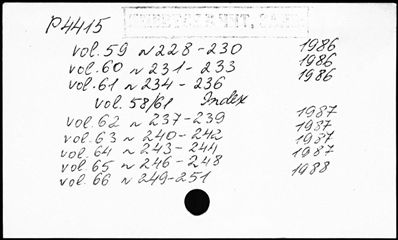 P4415
vol. 59 N 228-230 1986
vol. 60 N 231-233 1986
vol. 61 N 234-236 1986
vol. 58/61 Index
vol. 62 N 237-239 1987
vol. 63 N 240-242 1987
vol. 64 N 243-244 1987
vol. 65 N 246-248 1987
vol. 66 N 249-251 1988